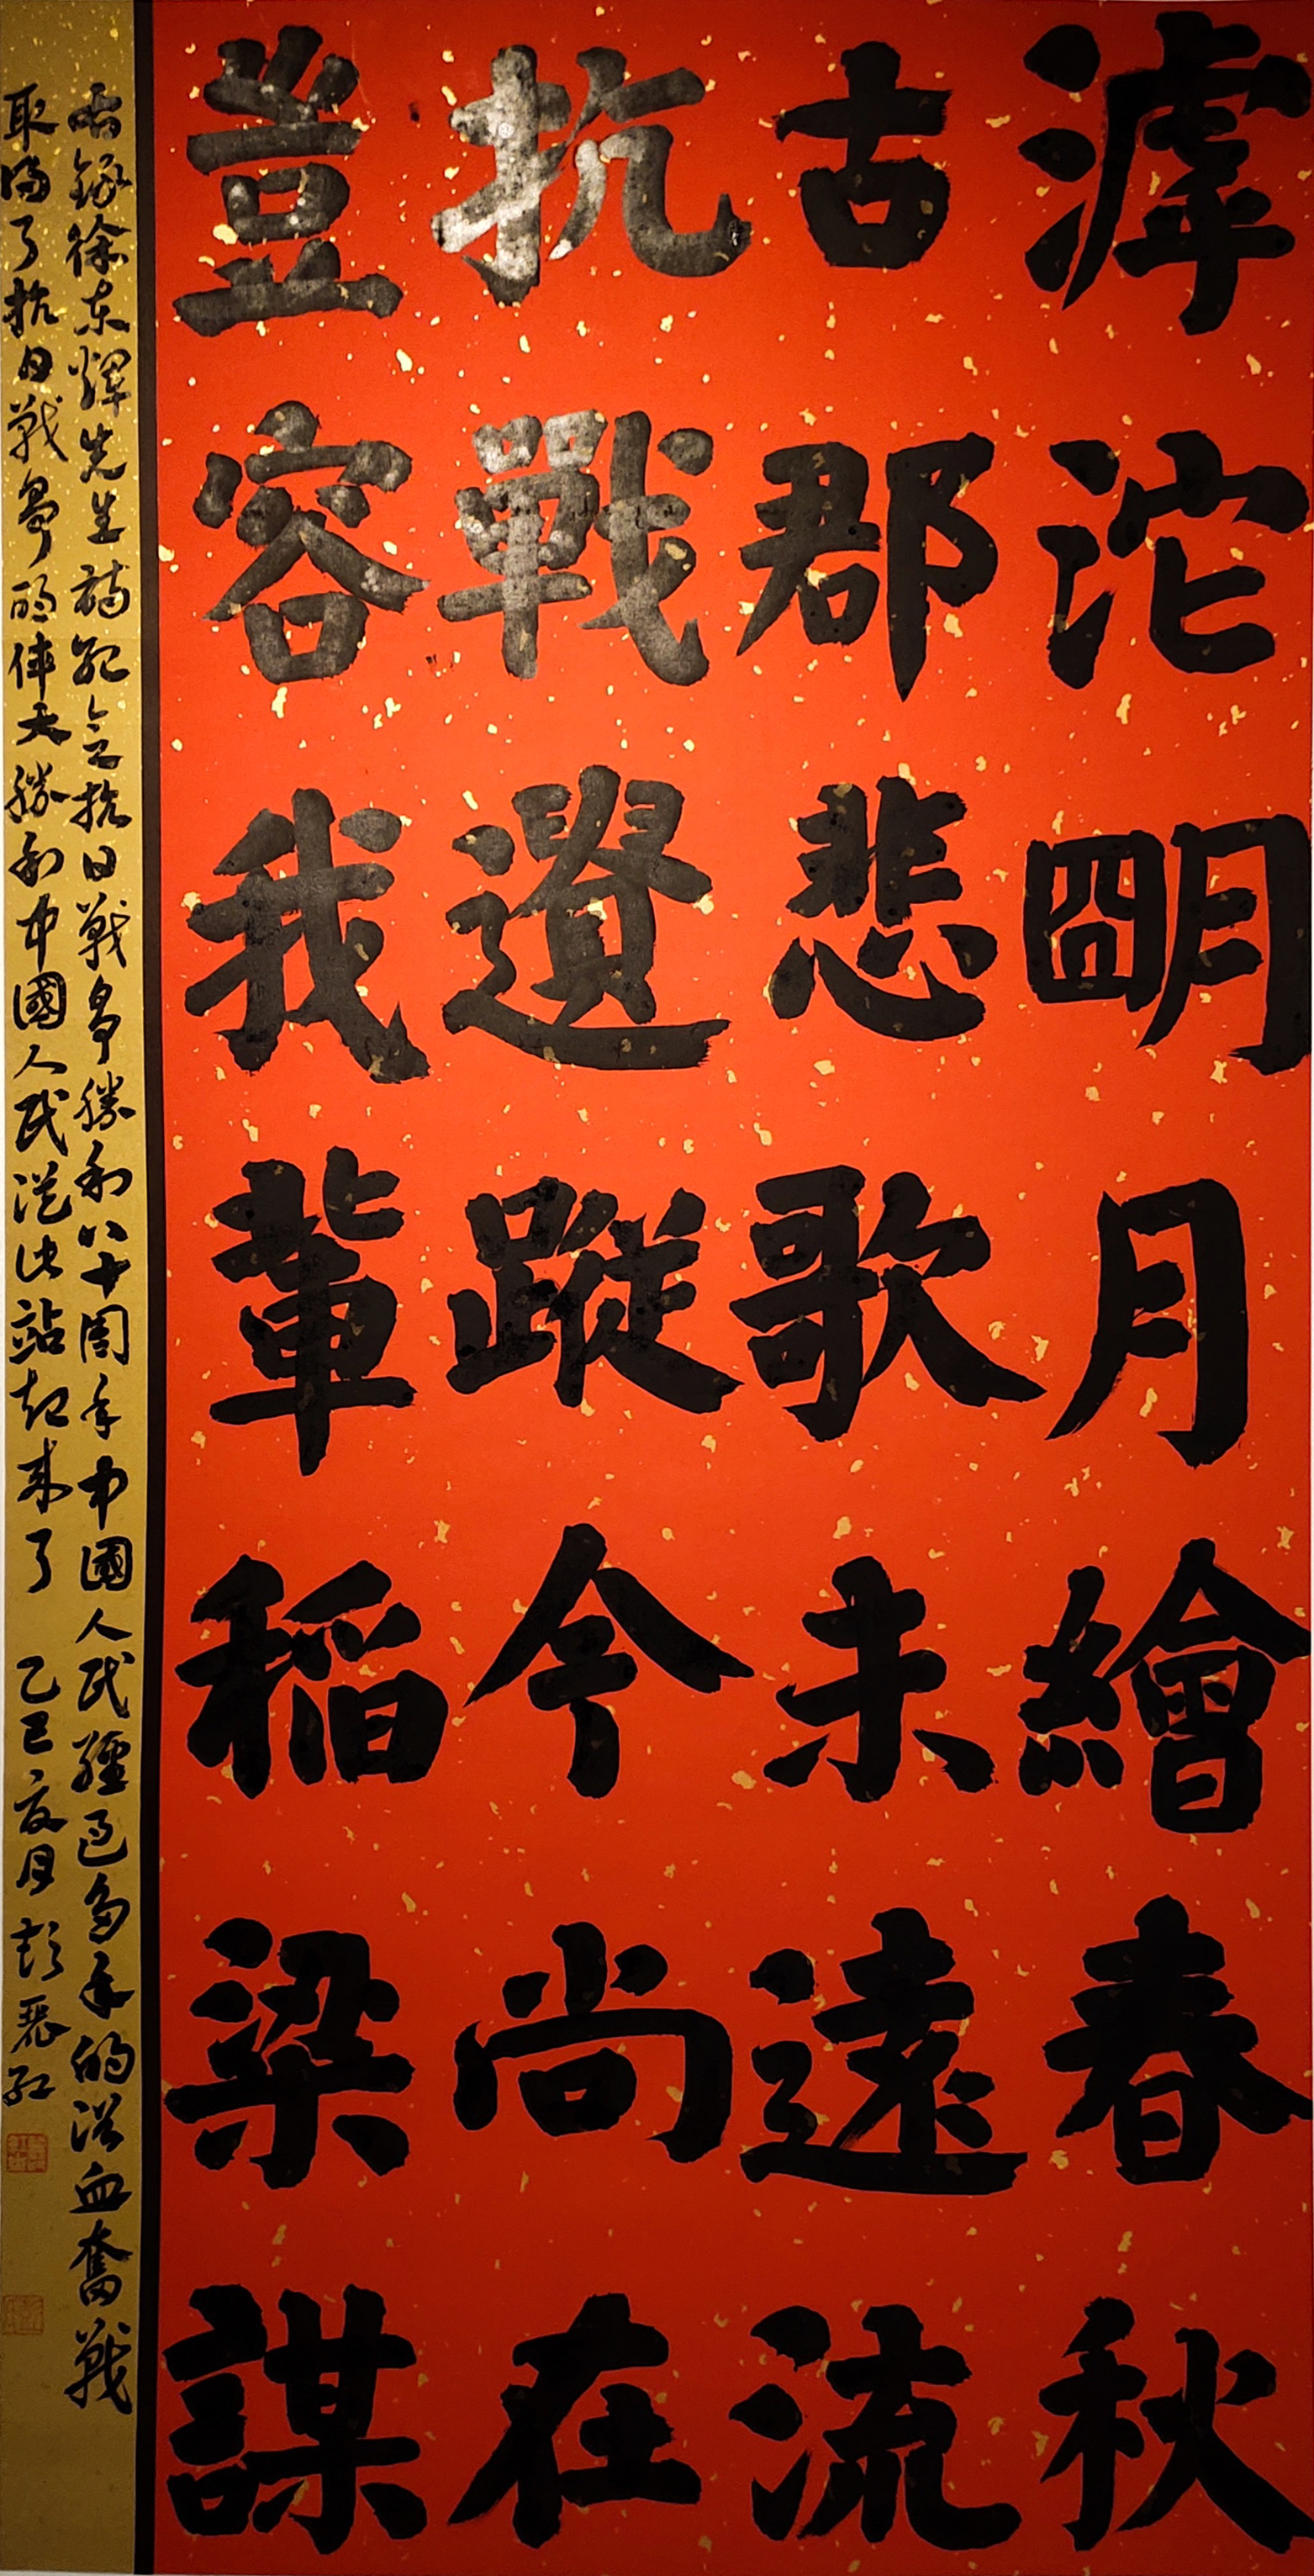 滹沱朙月繪春秋
古郡悲歌未遠流
抗戰遺蹤今尚在
豈容我輩稻粱謀
錄徐东輝先生詩紀念抗日戰爭勝利八十周年中國人民經過多年的浴血奮戰
取得了抗日戰爭的偉大勝利中國人民從此站起来了 乙巳夏月 彭